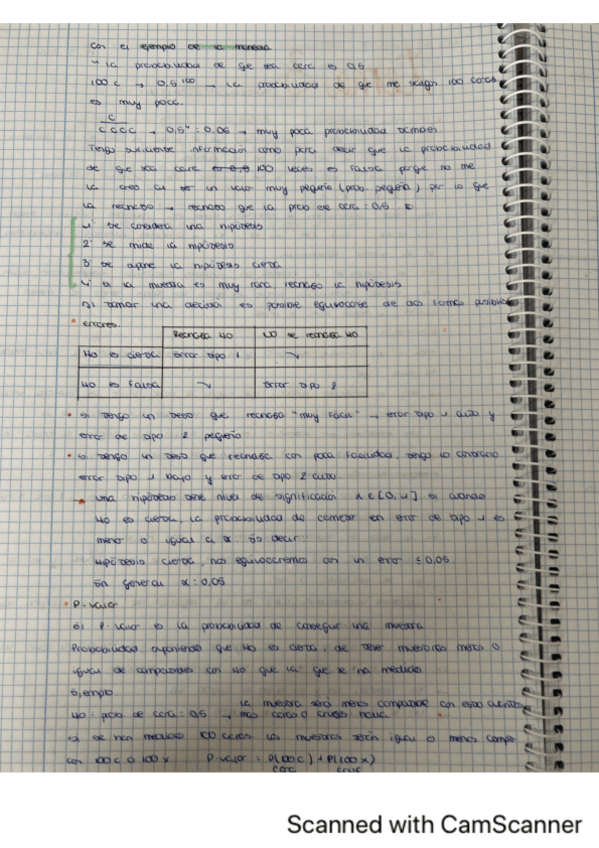 Con el ejemplo de la moneda
" la probabilidad de que sea cara es 0,5
100 c → 0,5¹⁰⁰ → la probabilidad de que me salgan 100 caras
es muy poca.
c
c c c c → 0,5⁴ = 0,06 → muy poca probabilidad
Tengo suficiente información como para decir que la probabilidad
de que sea cara 100 veces es falsa porque no me
la creo al ser un valor muy pequeño (prob. pequeña) por lo que
la rechazo → rechazo que la prob de cara = 0,5
1º se considera una hipótesis
2º se mide la hipótesis
3º se supone la hipótesis cierta
4º si la muestra es muy rara rechazo la hipótesis
Al tomar una decisión es posible equivocarse de dos formas posibles
errores.
Rechaza H0 NO se rechaza H0
H0 es cierta error tipo 1 ✓
H0 es falsa ✓ error tipo 2
• si tengo un test que rechaza "muy fácil" → error tipo 1 alto y
error de tipo 2 pequeño
• si tengo un test que rechaza con poca facilidad, tengo lo contrario
error tipo 1 bajo y error de tipo 2 alto.
• una hipótesis tiene nivel de significación α ∈ [0,1] si cuando
H0 es cierta, la probabilidad de cometer un error de tipo 1 es
menor o igual a α. Es decir
Hipótesis cierta, nos equivocaremos con un error ≤ 0,05
En general α = 0,05
• P-valor
El P-valor es la probabilidad de conseguir una muestra
Probabilidad suponiendo que H0 es cierta, de tener muestras menos o
igual de compatibles con H0 que la que se ha medido
Ejemplo
la muestra será menos compatible con esto cuantas
H0 = prob de cara = 0,5 → más caras o cruces haya
si se han medido 100 caras las muestras serán igual o menos compa-
con 100 c o 100 x P-valor = P(100 c) + P(100 x)
cara cruz
Scanned with CamScanner